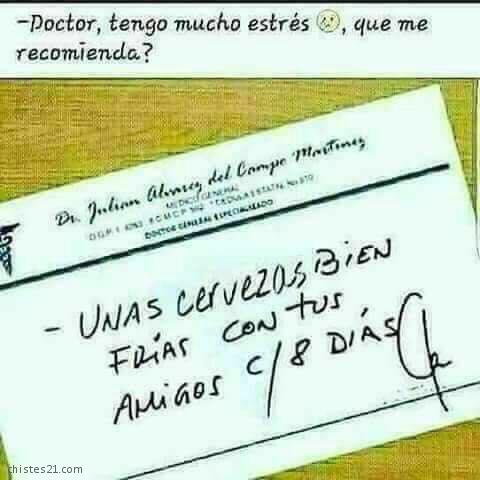 -Doctor, tengo mucho estrés 😟, que me
recomienda?
Dr. Julian Alvarez del Campo Martinez
MEDICO GENERAL
DOCTOR GENERAL ESPECIALIZADO
- UNAS CERVEZAS BIEN
FRÍAS CON TUS
AMIGOS C/8 DÍAS
chistes21.com